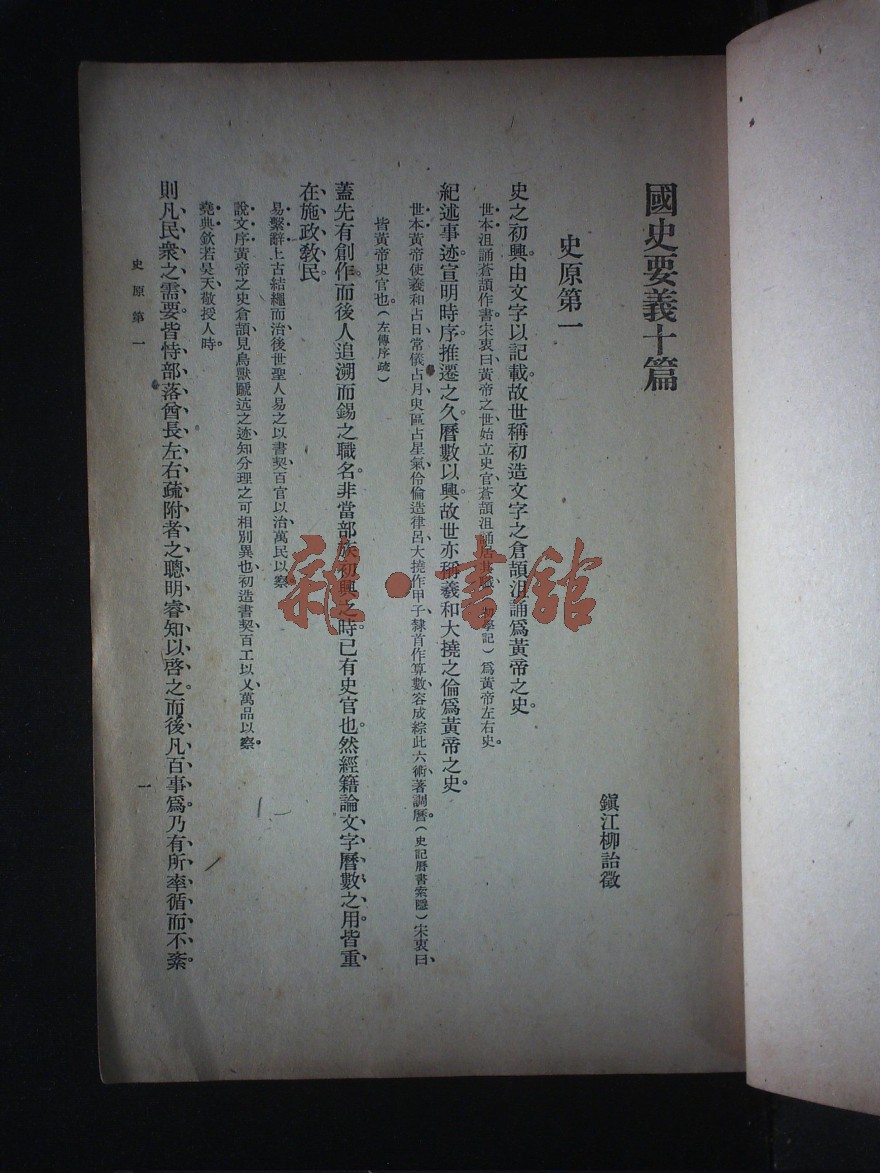 國史要義十篇
鎭江柳詒徵
史原第一
史之初興。由文字以記載。故世稱初造文字之倉頡沮誦爲黃帝之史。
世本沮誦蒼頡作書宋衷曰黃帝之世始立史官蒼頡沮誦居其職（初學記）爲黃帝左右史。
紀述事迹。宣明時序。推遷之久。曆數以興。故世亦稱羲和大撓之倫爲黃帝之史。
世本黃帝使羲和占日、常儀占月、臾區占星氣、伶倫造律呂、大撓作甲子、隸首作算數、容成綜此六術、著調曆。（史記曆書索隱）宋衷曰、
皆黃帝史官也。（左傳序疏）
蓋先有創作而後人追溯而錫之職名。非當部族初興之時。已有史官也。然經籍論文字曆數之用。皆重
在施政敎民
易繫辭上古結繩而治後世聖人易之以書契百官以治萬民以察。
說文序黃帝之史倉頡見鳥獸蹏迒之迹知分理之可相別異也初造書契百工以乂萬品以察。
堯典欽若昊天敬授人時。
則凡民衆之需要皆恃部落酋長左右疏附者之聰明睿知以啓之而後凡百事爲。乃有所率循而不紊
史原第一
一
雜·書館